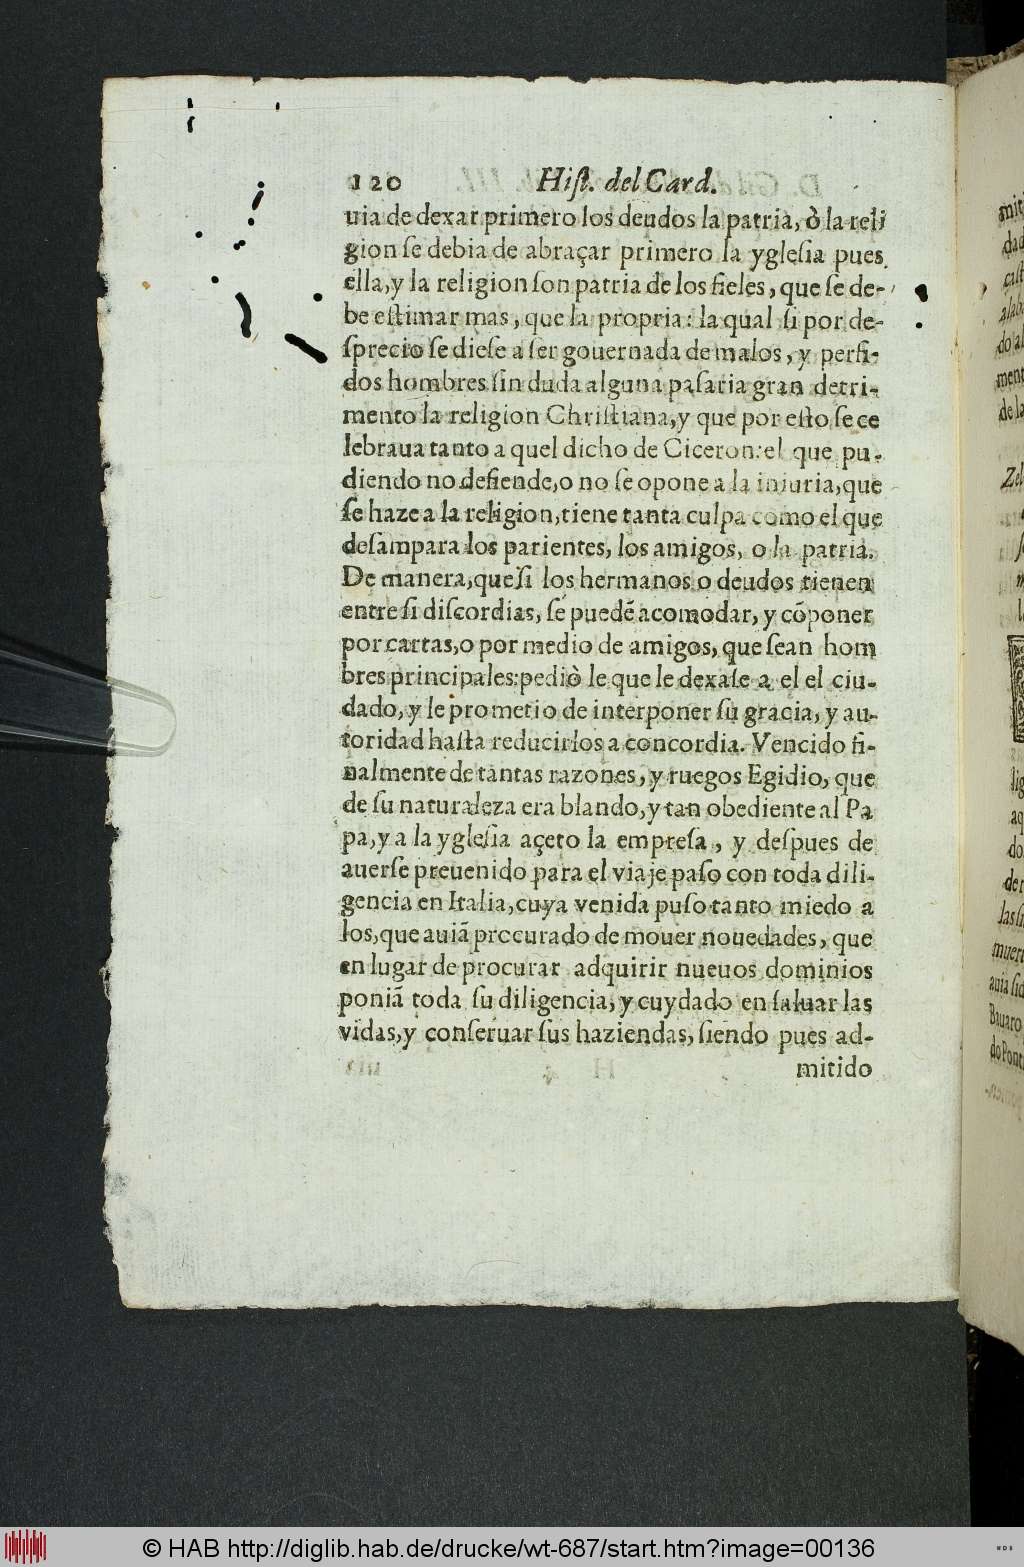 120 Hiſt. del Card.
uia de dexar primero los deudos la patria, ò la reli
gion ſe debia de abraçar primero la ygleſia pues
ella, y la religion ſon patria de los fieles, que ſe de-
be eſtimar mas, que la propria: la qual ſi por de-
ſprecio ſe dieſe a ſer gouernada de malos, y perfi-
dos hombres ſin duda alguna paſaria gran detri-
mento la religion Chriſtiana, y que por eſto ſe ce
lebraua tanto a quel dicho de Ciceron: el que pu-
diendo no defiende, o no ſe opone a la injuria, que
ſe haze a la religion, tiene tanta culpa como el que
deſampara los parientes, los amigos, o la patria.
De manera, que ſi los hermanos o deudos tienen
entre ſi diſcordias, ſe puedẽ acomodar, y cõponer
por cartas, o por medio de amigos, que ſean hom
bres principales: pediò le que le dexaſe a el el ciu-
dado, y le prometio de interponer ſu gracia, y au-
toridad haſta reducirlos a concordia. Vencido fi-
nalmente de tantas razones, y ruegos Egidio, que
de ſu naturaleza era blando, y tan obediente al Pa
pa, y a la ygleſia açeto la empreſa, y deſpues de
auerſe preuenido para el viaje paſo con toda dili-
gencia en Italia, cuya venida puſo tanto miedo a
los, que auiã procurado de mouer nouedades, que
en lugar de procurar adquirir nueuos dominios
poniã toda ſu diligencia, y cuydado en ſaluar las
vidas, y conſeruar ſus haziendas, ſiendo pues ad-
mitido
© HAB http://diglib.hab.de/drucke/wt-687/start.htm?image=00136